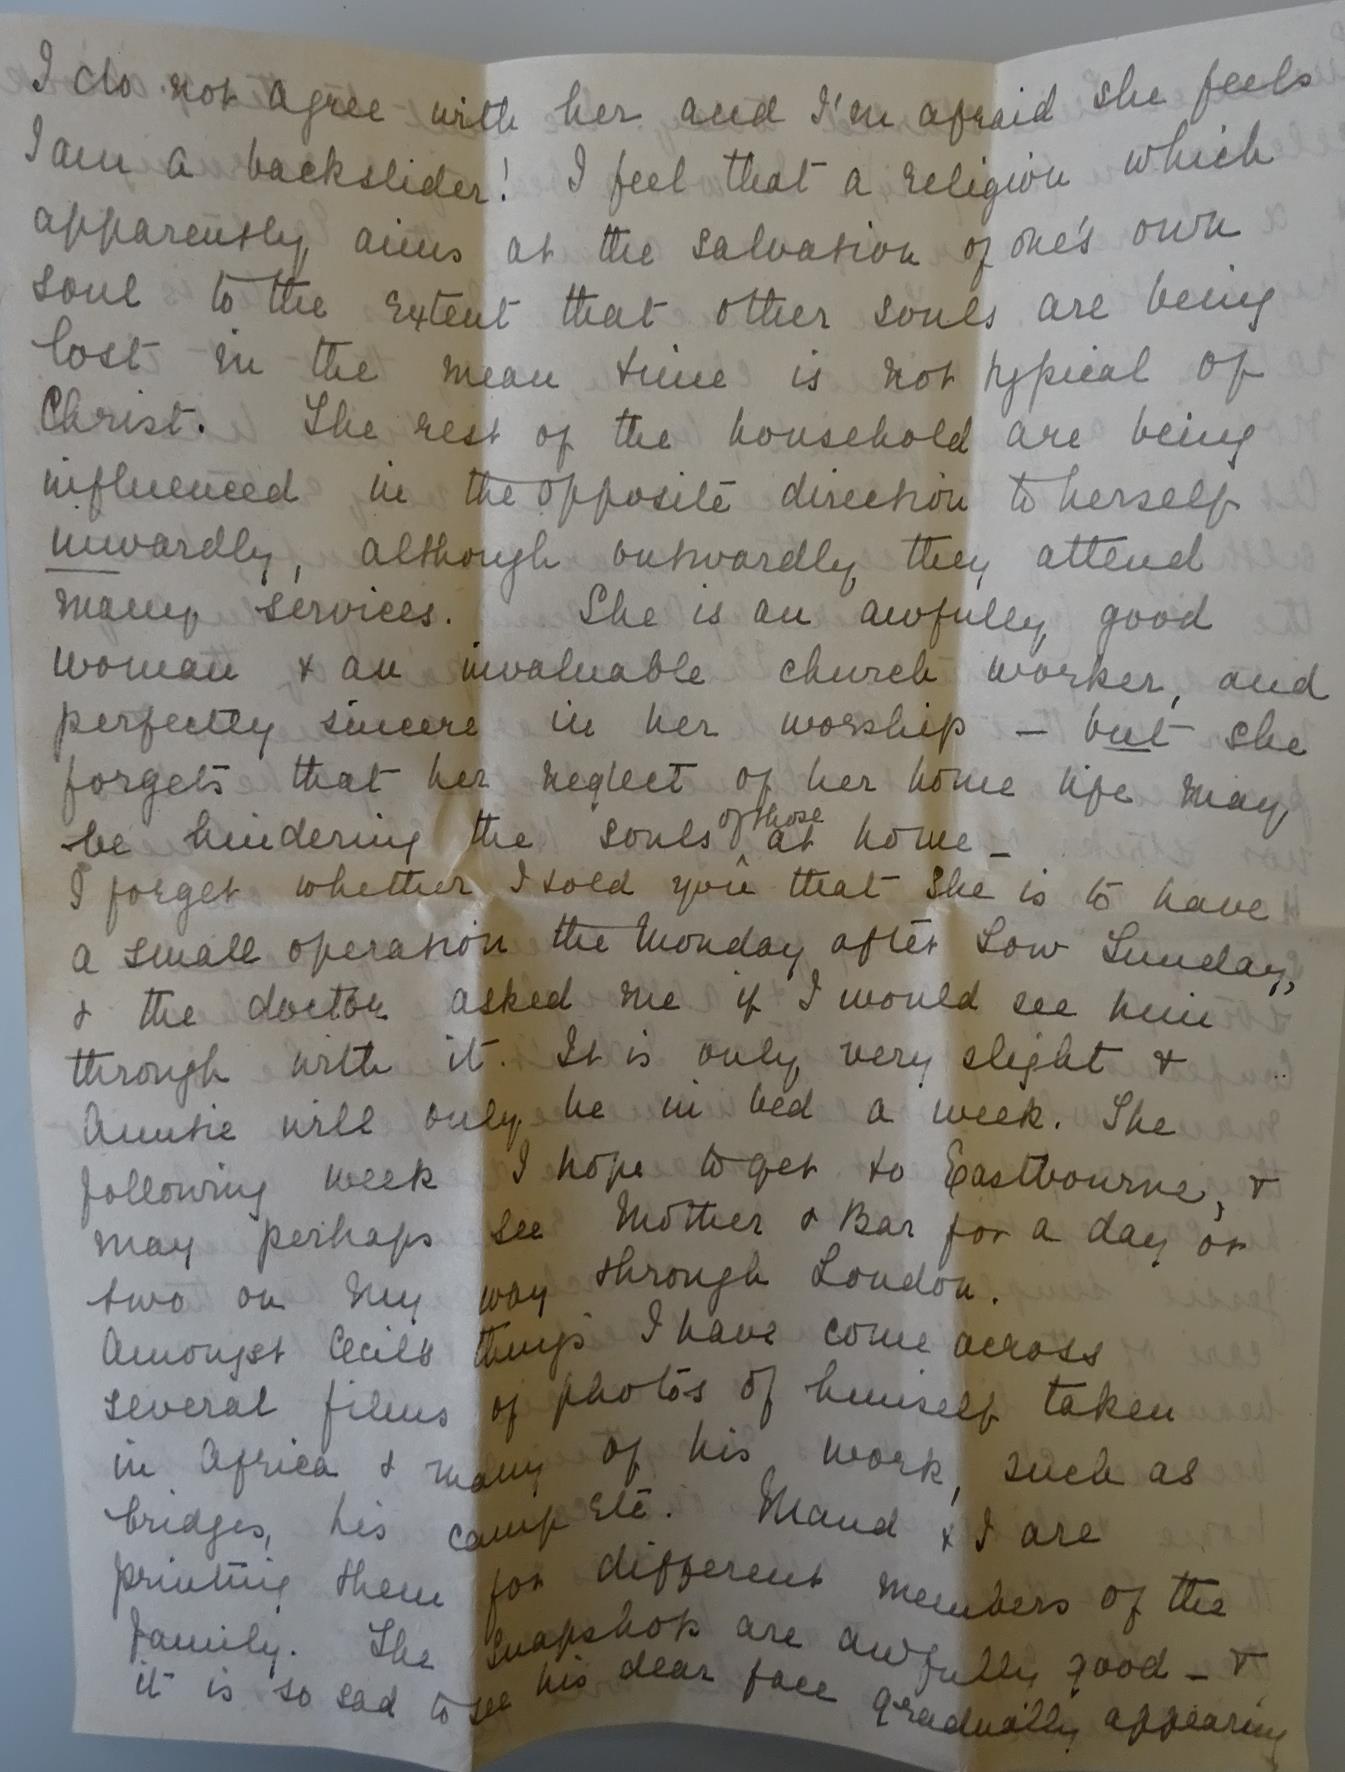 I do not agree with her and I'm afraid she feels
I am a backslider! I feel that a religion which
apparently, aims at the salvation of one's own
soul to the extent that other souls are being
lost in the mean time is not typical of
Christ. The rest of the household are being
influenced in the opposite direction to herself
inwardly, although outwardly they attend
many services. She is an awfully good
woman & an invaluable church worker, and
perfectly sincere in her worship – but she
forgets that her neglect of her home life may
be hindering the souls of those at home –
I forget whether I told you that she is to have
a small operation the Monday after Low Sunday,
& the doctor asked me if I would see him
through with it. It is only very slight &
Auntie will only be in bed a week. The
following week I hope to get to Eastbourne, &
may perhaps see Mother & Bar for a day or
two on my way through London.
Amongst Cecil's things I have come across
several films of photos of himself taken
in Africa & many of his work, such as
bridges, his camp etc. Maud & I are
printing them for different members of the
family. The snapshots are awfully good – &
it is so sad to see his dear face gradually appearing